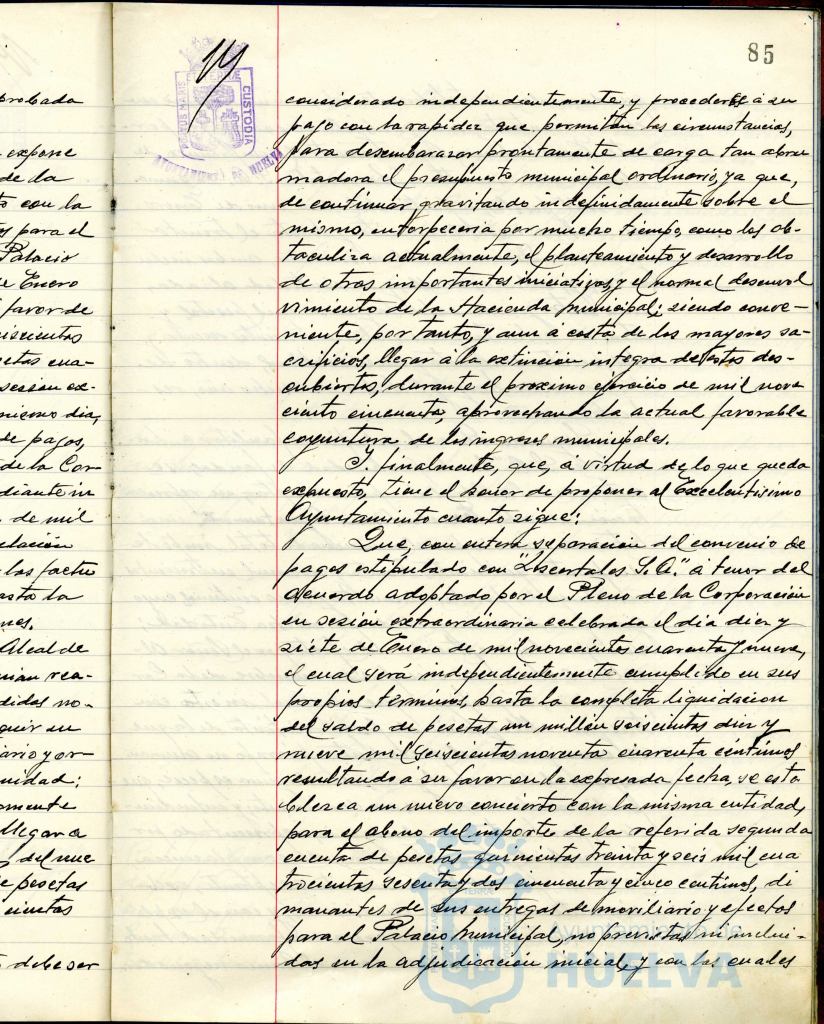 probada
expone
de la
con la
para el
Palacio
Enero
favor de
seiscientas
setas cua-
sesión ex-
mismo dia,
de pagos,
de la Cor-
diante in
de mil
relación
las factu
hasta la
nes.
Alcalde
nian rea-
didos no-
guir su
ario y or-
nidad;
amente
llegar a
del nue
pesetas
cientos
debe ser
14
PORTUS MARIS ET TERRAE CUSTODIA
AYUNTAMIENTO DE HUELVA
85
considerado independientemente, y procederse á su
pago con la rapidez que permitan las circunstancias,
para desembarazar prontamente de carga tan abru
madora el presupuesto municipal ordinario, ya que,
de continuar gravitando indefinidamente sobre el
mismo, entorpeceria por mucho tiempo, como los obs-
taculiza actualmente, el planteamiento y desarrollo
de otras importantes iniciativas, y el normal desenvol
vimiento de la Hacienda municipal; siendo conve-
niente, por tanto, y aun á costa de los mayores sa-
crificios, llegar á la extinción integra de estos des-
cubiertos, durante el proximo ejercicio de mil nove
ciento cincuenta, aprovechando la actual favorable
coyuntura de los ingresos municipales.
Y, finalmente, que, á virtud de lo que queda
expuesto, tiene el honor de proponer al Excelentisimo
Ayuntamiento cuanto sigue:
Que, con entera separación del convenio de
pagos estipulado con "Loscertales S.A." á tenor del
acuerdo adoptado por el Pleno de la Corporación
en sesión extraordinaria celebrada el dia diez y
siete de Enero de mil novecientos cuarenta y nueve,
el cual será independientemente cumplido en sus
propios terminos, hasta la completa liquidacion
del saldo de pesetas un millón seiscientas diez y
nueve mil seiscientas noventa cuarenta céntimos
resultando á su favor en la expresada fecha, se esta
blezca un nuevo concierto con la misma entidad,
para el abono del importe de la referida segunda
cuenta de pesetas quinientas treinta y seis mil cua
trocientas sesenta y dos cincuenta y cinco centimos, di
manantes de sus entregas de moviliario y efectos
para el Palacio Municipal, no previstas ni inclui-
das en la adjudicación inicial, y con las cuales
Ayuntamiento de
HUELVA